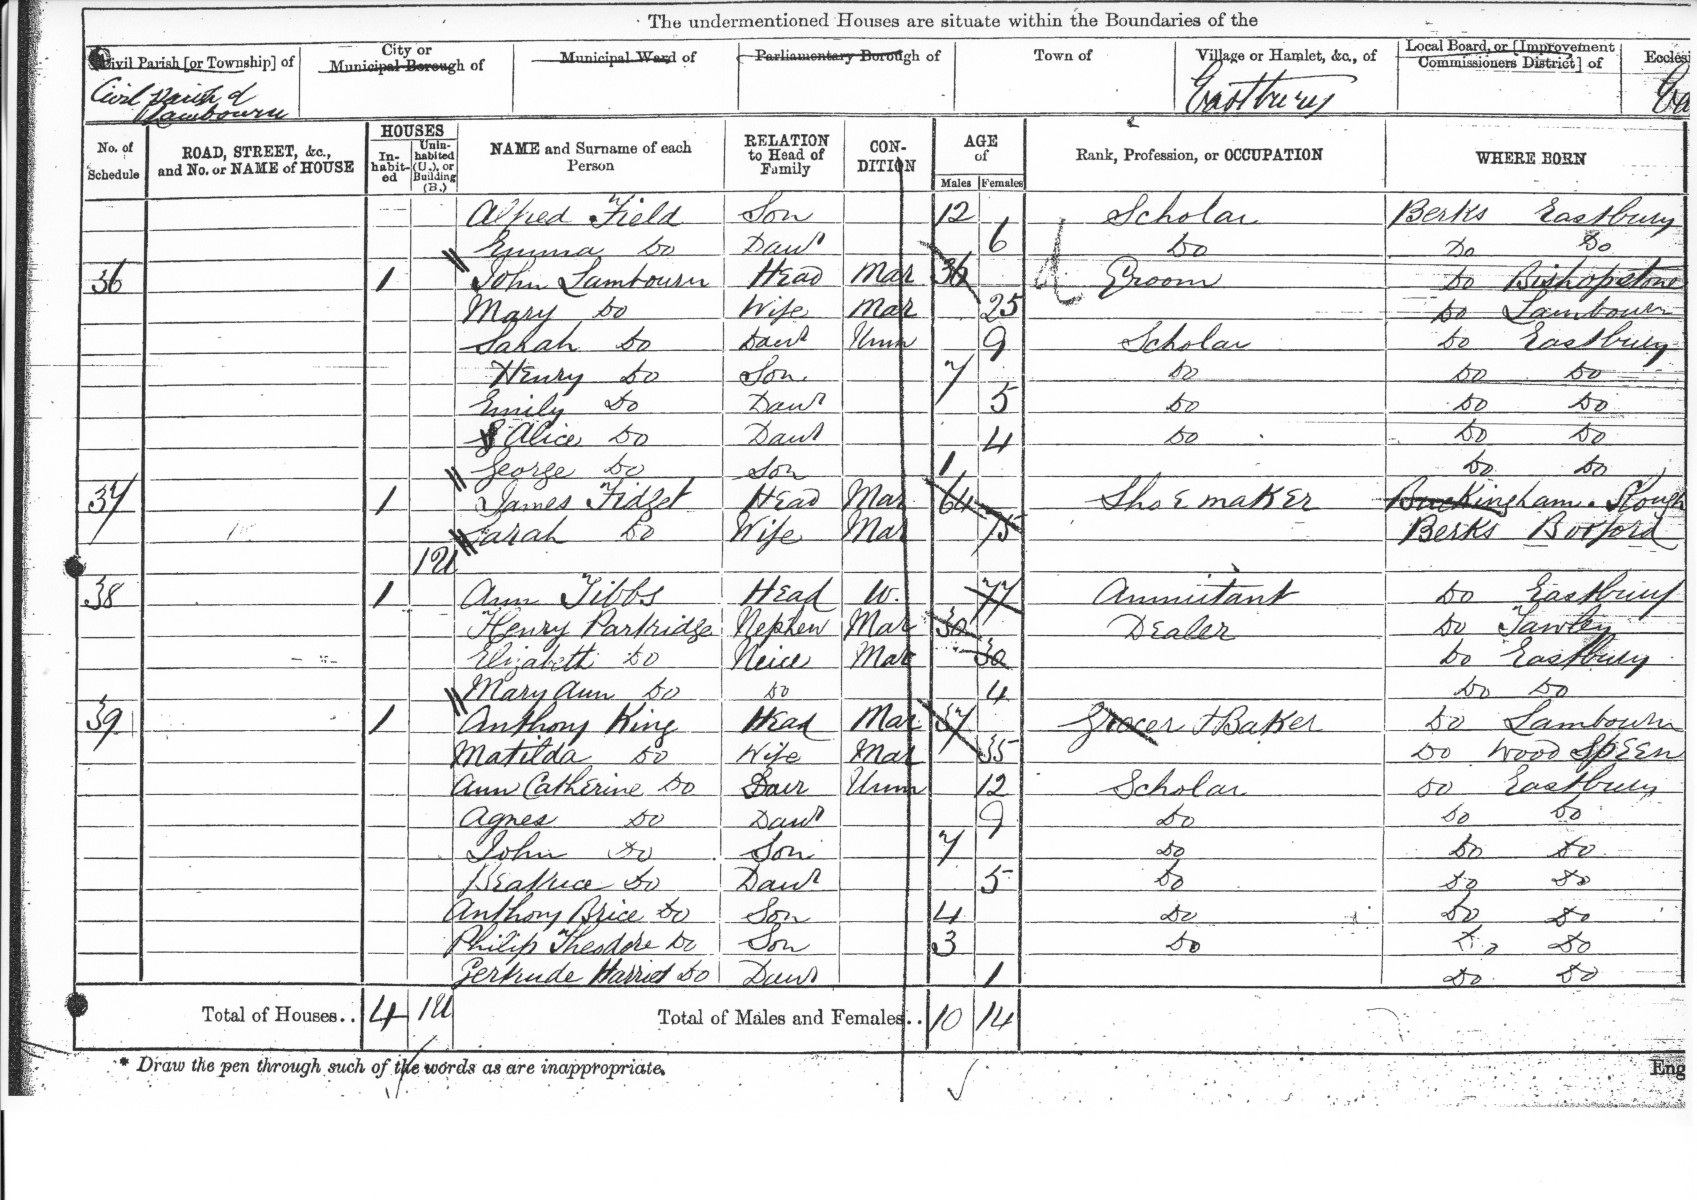 The undermentioned Houses are situate within the Boundaries of the
Civil Parish [or Township] of City or Municipal Borough of Municipal Ward of Parliamentary Borough of Town of Village or Hamlet, &c., of Local Board, or [Improvement Commissioners District] of
Civil Parish of Lambourn Eastbury
No. of Schedule ROAD, STREET, &c., and No. or NAME of HOUSE HOUSES Inhabited Uninhabited (U.), or Building (B.) NAME and Surname of each Person RELATION to Head of Family CONDITION AGE of Males Females Rank, Profession, or OCCUPATION WHERE BORN
Alfred Field Son 12 Scholar Berks Eastbury
Emma Do Daur 6 Do Do Do
36 1 John Lambourn Head Mar 36 Groom Do Bishopstone
Mary Do Wife Mar 25 Do Lambourn
Sarah Do Daur Unm 9 Scholar Do Eastbury
Henry Do Son 7 Do Do Do
Emily Do Daur 5 Do Do Do
Alice Do Daur 4 Do Do Do
George Do Son 1 Do Do
37 1 James Fidget Head Mar 64 Shoemaker Buckingham. Slough
Sarah Do Wife Mar 75 Berks Boxford
1U
38 1 Ann Tibbs Head W. 77 Annuitant Do Eastbury
Henry Partridge Nephew Mar 30 Dealer Do
Elizabeth Do Neice Mar 30 Do Eastbury
Mary Ann Do Do 4 Do Do
39 1 Anthony King Head Mar 37 Grocer + Baker Do Lambourn
Matilda Do Wife Mar 35 Do Wood Speen
Ann Catherine Do Daur Unm 12 Scholar Do Eastbury
Agnes Do Daur 9 Do Do Do
John Do Son 7 Do Do Do
Beatrice Do Daur 5 Do Do Do
Anthony Brice Do Son 4 Do Do Do
Philip Theodore Do Son 3 Do Do Do
Gertrude Harriet Do Daur 1 Do Do
Total of Houses.. 4 1U Total of Males and Females.. 10 14
* Draw the pen through such of the words as are inappropriate. Eng